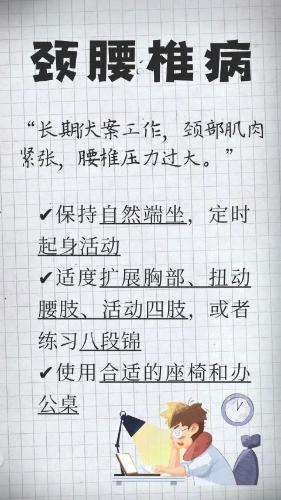 颈腰椎病
“长期伏案工作，颈部肌肉
紧张，腰椎压力过大。”
✔保持自然端坐，定时
起身活动
✔适度扩展胸部、扭动
腰肢、活动四肢，或者
练习八段锦
✔使用合适的座椅和办
公桌